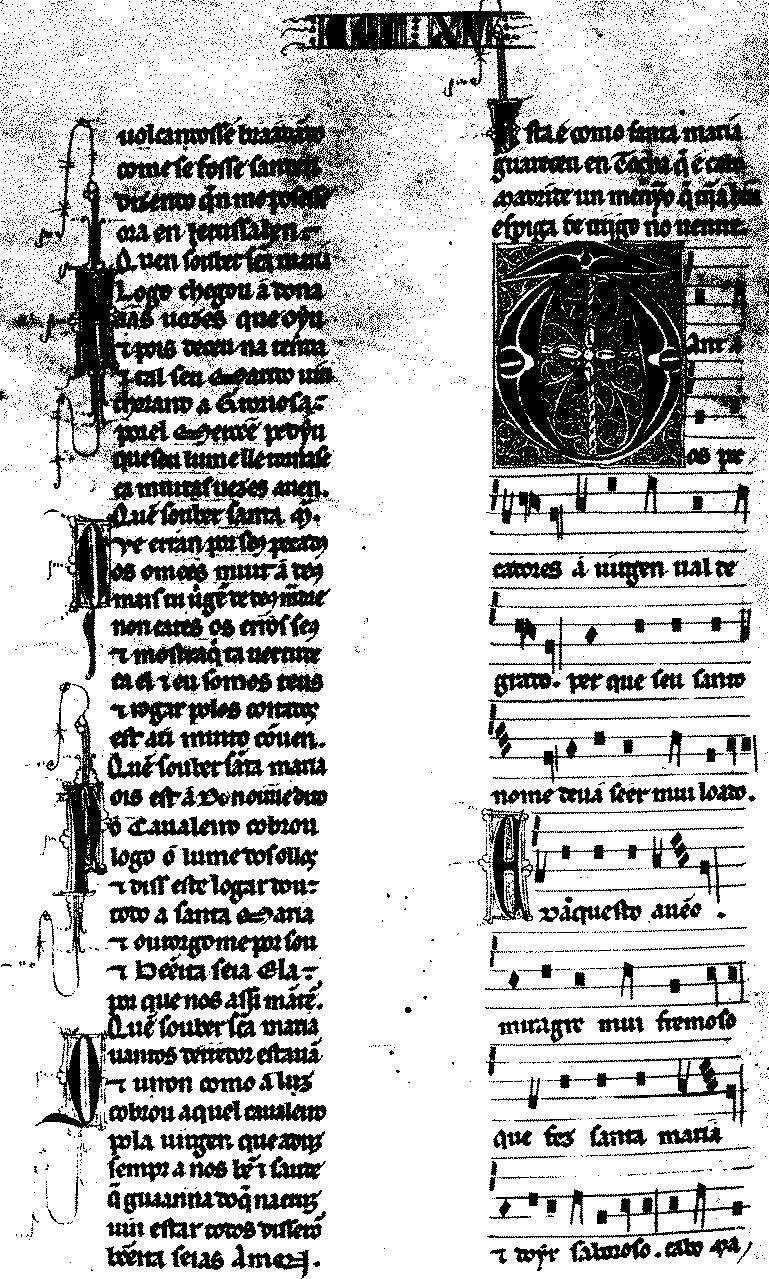 uoltando sse braadando
come se fosse sandeu
dizendo q̄n me posesse
ora en Jerussalen.
Quen souber sc̄a maria
Logo chegou a dona
aas uozes que oyu
⁊ pois deceu na tenda
⁊ tal seu marido uiu
chorand a Grorïosa
por el mercee pedyu
que seu lume lle tornasse
ca muitas uezes auen.
Quē souber santa m̄.
os omẽes muit a tey
mais tu uirgẽ
non cates os erros seus
⁊ mostra q̄ ta uertude
ca el ⁊ eu somos teus
⁊ rogar polos coitados
est a ti muito cōuen.
Quē souber sāta maria
ois est a Don ouue dito
o Caualeiro cobrou
logo o lume dos ollos
⁊ diss este logar dou
todo a santa Maria
⁊ outorgo me por seu
⁊ bēeita seia Ela
por que nos assi mātē.
Quē souber sc̄a maria
uantos derredor estauā
⁊ uiron como a luz
cobrou aquel caualeiro
pola uirgen que aduz
sempr a nos bē ⁊ saude
q̄ guanna do q̄ na cruz
uiu estar todos disserō
beeita seias Amen.
Esta é como santa maria
guareceu en Tocha q̄ é cabo
Madride un menỹo q̄ tijna hũa
espiga de trigo no uentre.
Tant a
os pe
cadores a uirgen ual de
grado. per que seu santo
nome deua seer mui loado.
E daquesto auēo.
miragre mui fremoso
que fez santa maria
⁊ doỹr saboroso. cabo Ma